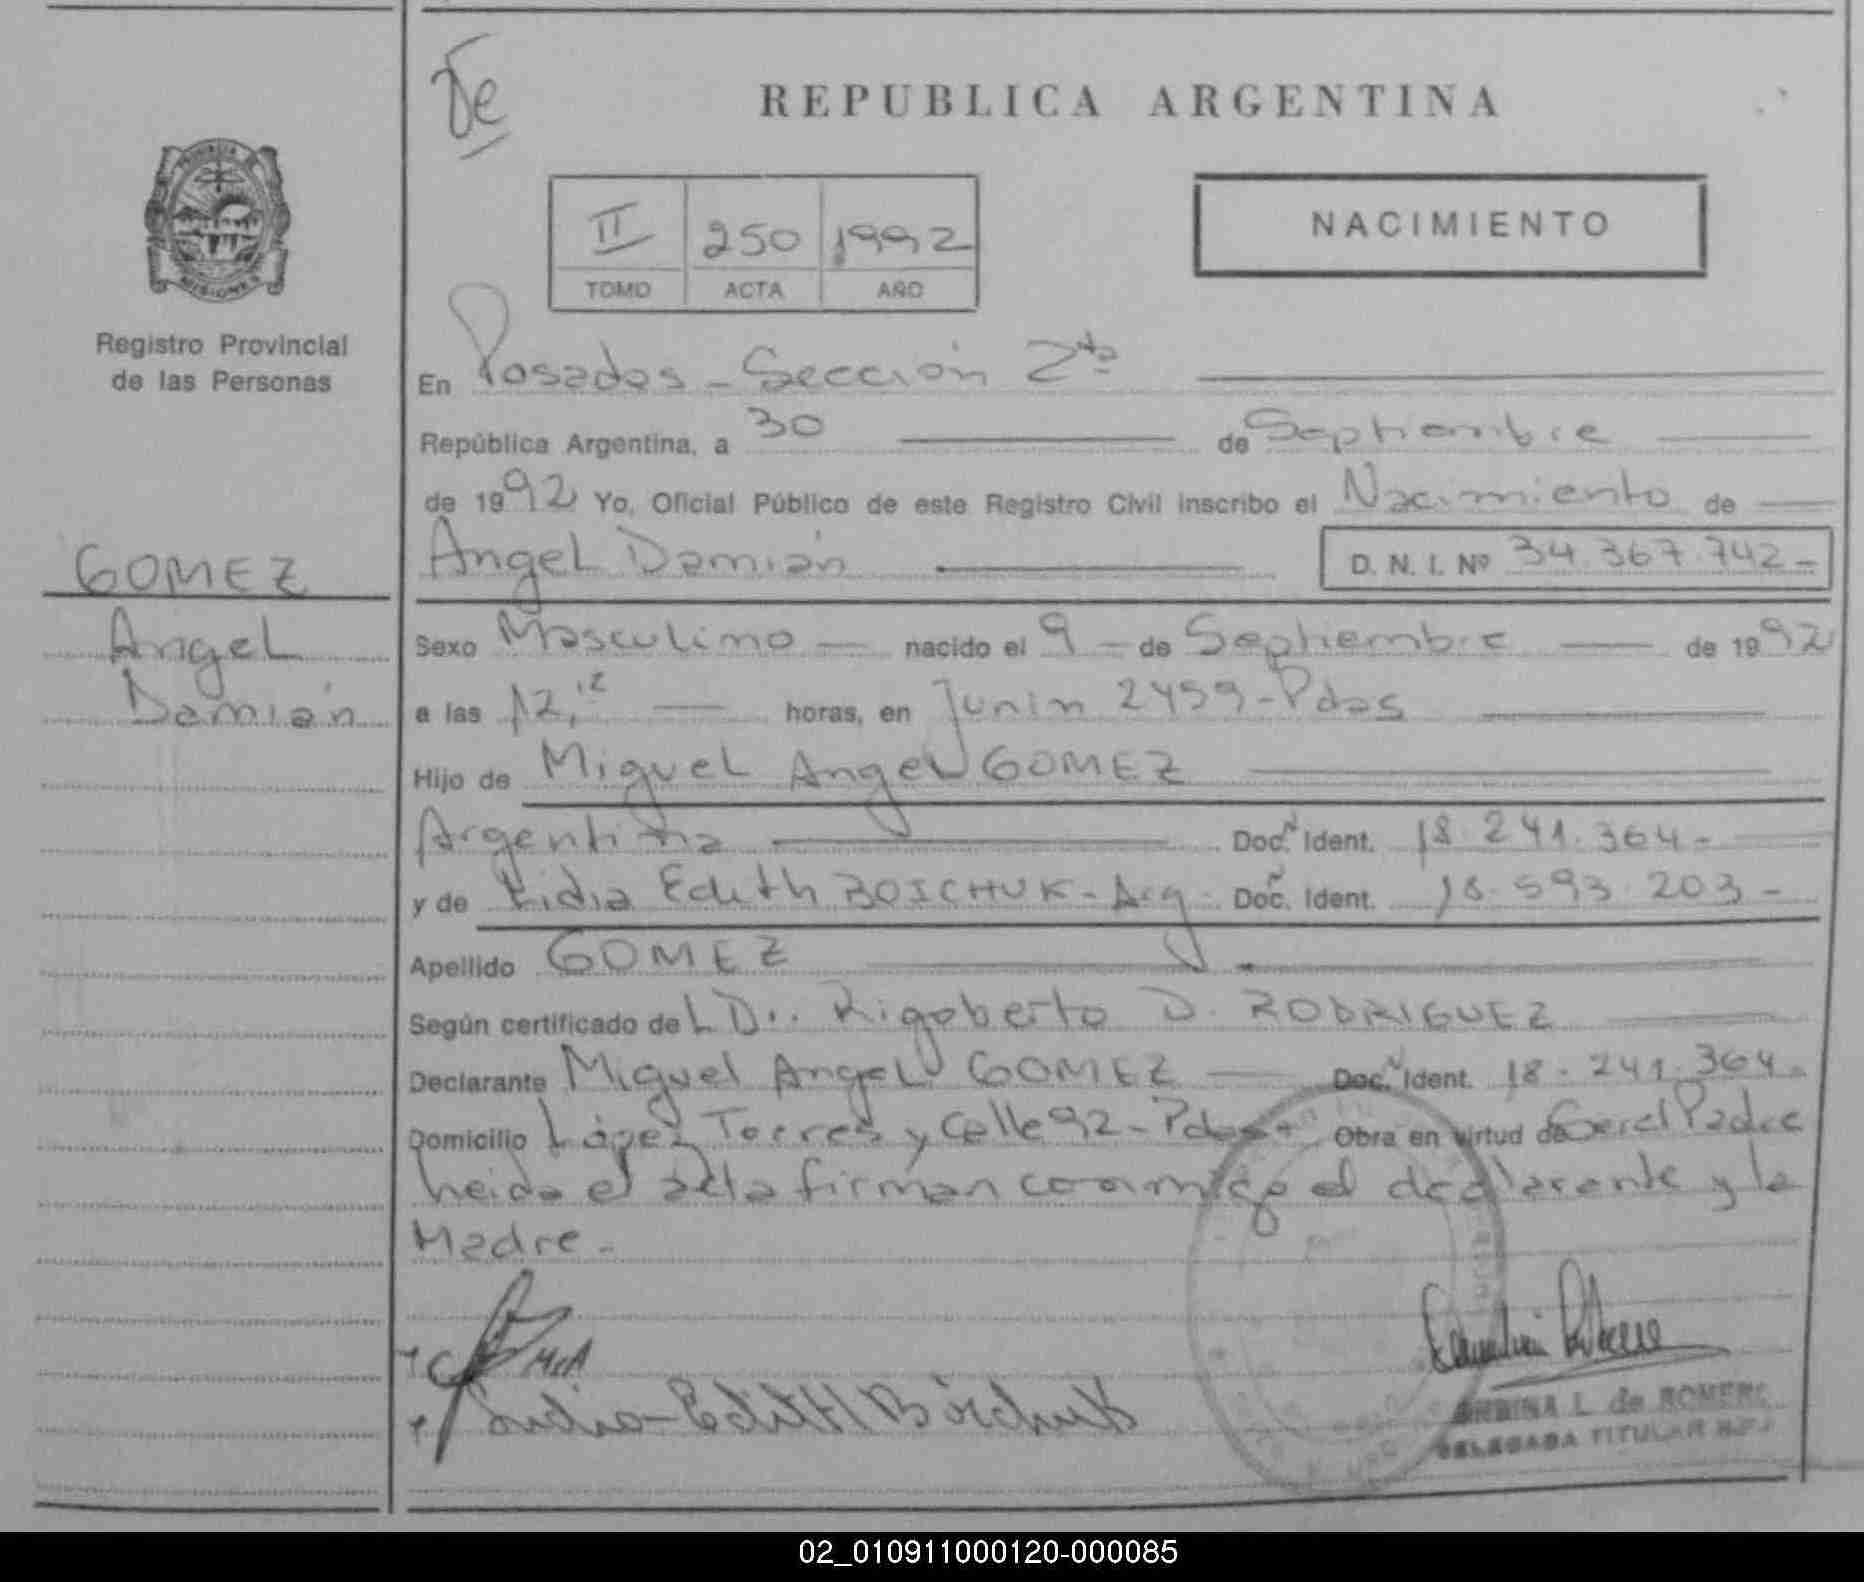 De
REPUBLICA ARGENTINA
PROVINCIA DE
MISIONES
II 250 1992
TOMO ACTA AÑO
NACIMIENTO
Registro Provincial
de las Personas
En Posadas - Sección 2da
República Argentina, a 30 de Septiembre
de 1992 Yo, Oficial Público de este Registro Civil inscribo el Nacimiento de
GOMEZ
Angel
Damián
Angel Damián D. N. I. Nº 34.367.742-
Sexo Masculino nacido el 9 de Septiembre de 1992
a las 12,12 horas, en Junin 2459-Pdas
Hijo de Miguel Angel GOMEZ
Argentina Doc. Ident. 18.241.364-
y de Lidia Edith BOICHUK-Arg. Doc. Ident. 18.593.203-
Apellido GOMEZ
Según certificado del Dr. Rigoberto D. RODRIGUEZ
Declarante Miguel Angel GOMEZ Doc. Ident. 18.241.364-
Domicilio López Torres y Calle 92-Pdas Obra en virtud de Ser el Padre
heida el acta firman conmigo el declarante y la
Madre-
Lidia Edith Boichuk
L. de ROMERO
DELEGADA TITULAR
02_010911000120-000085